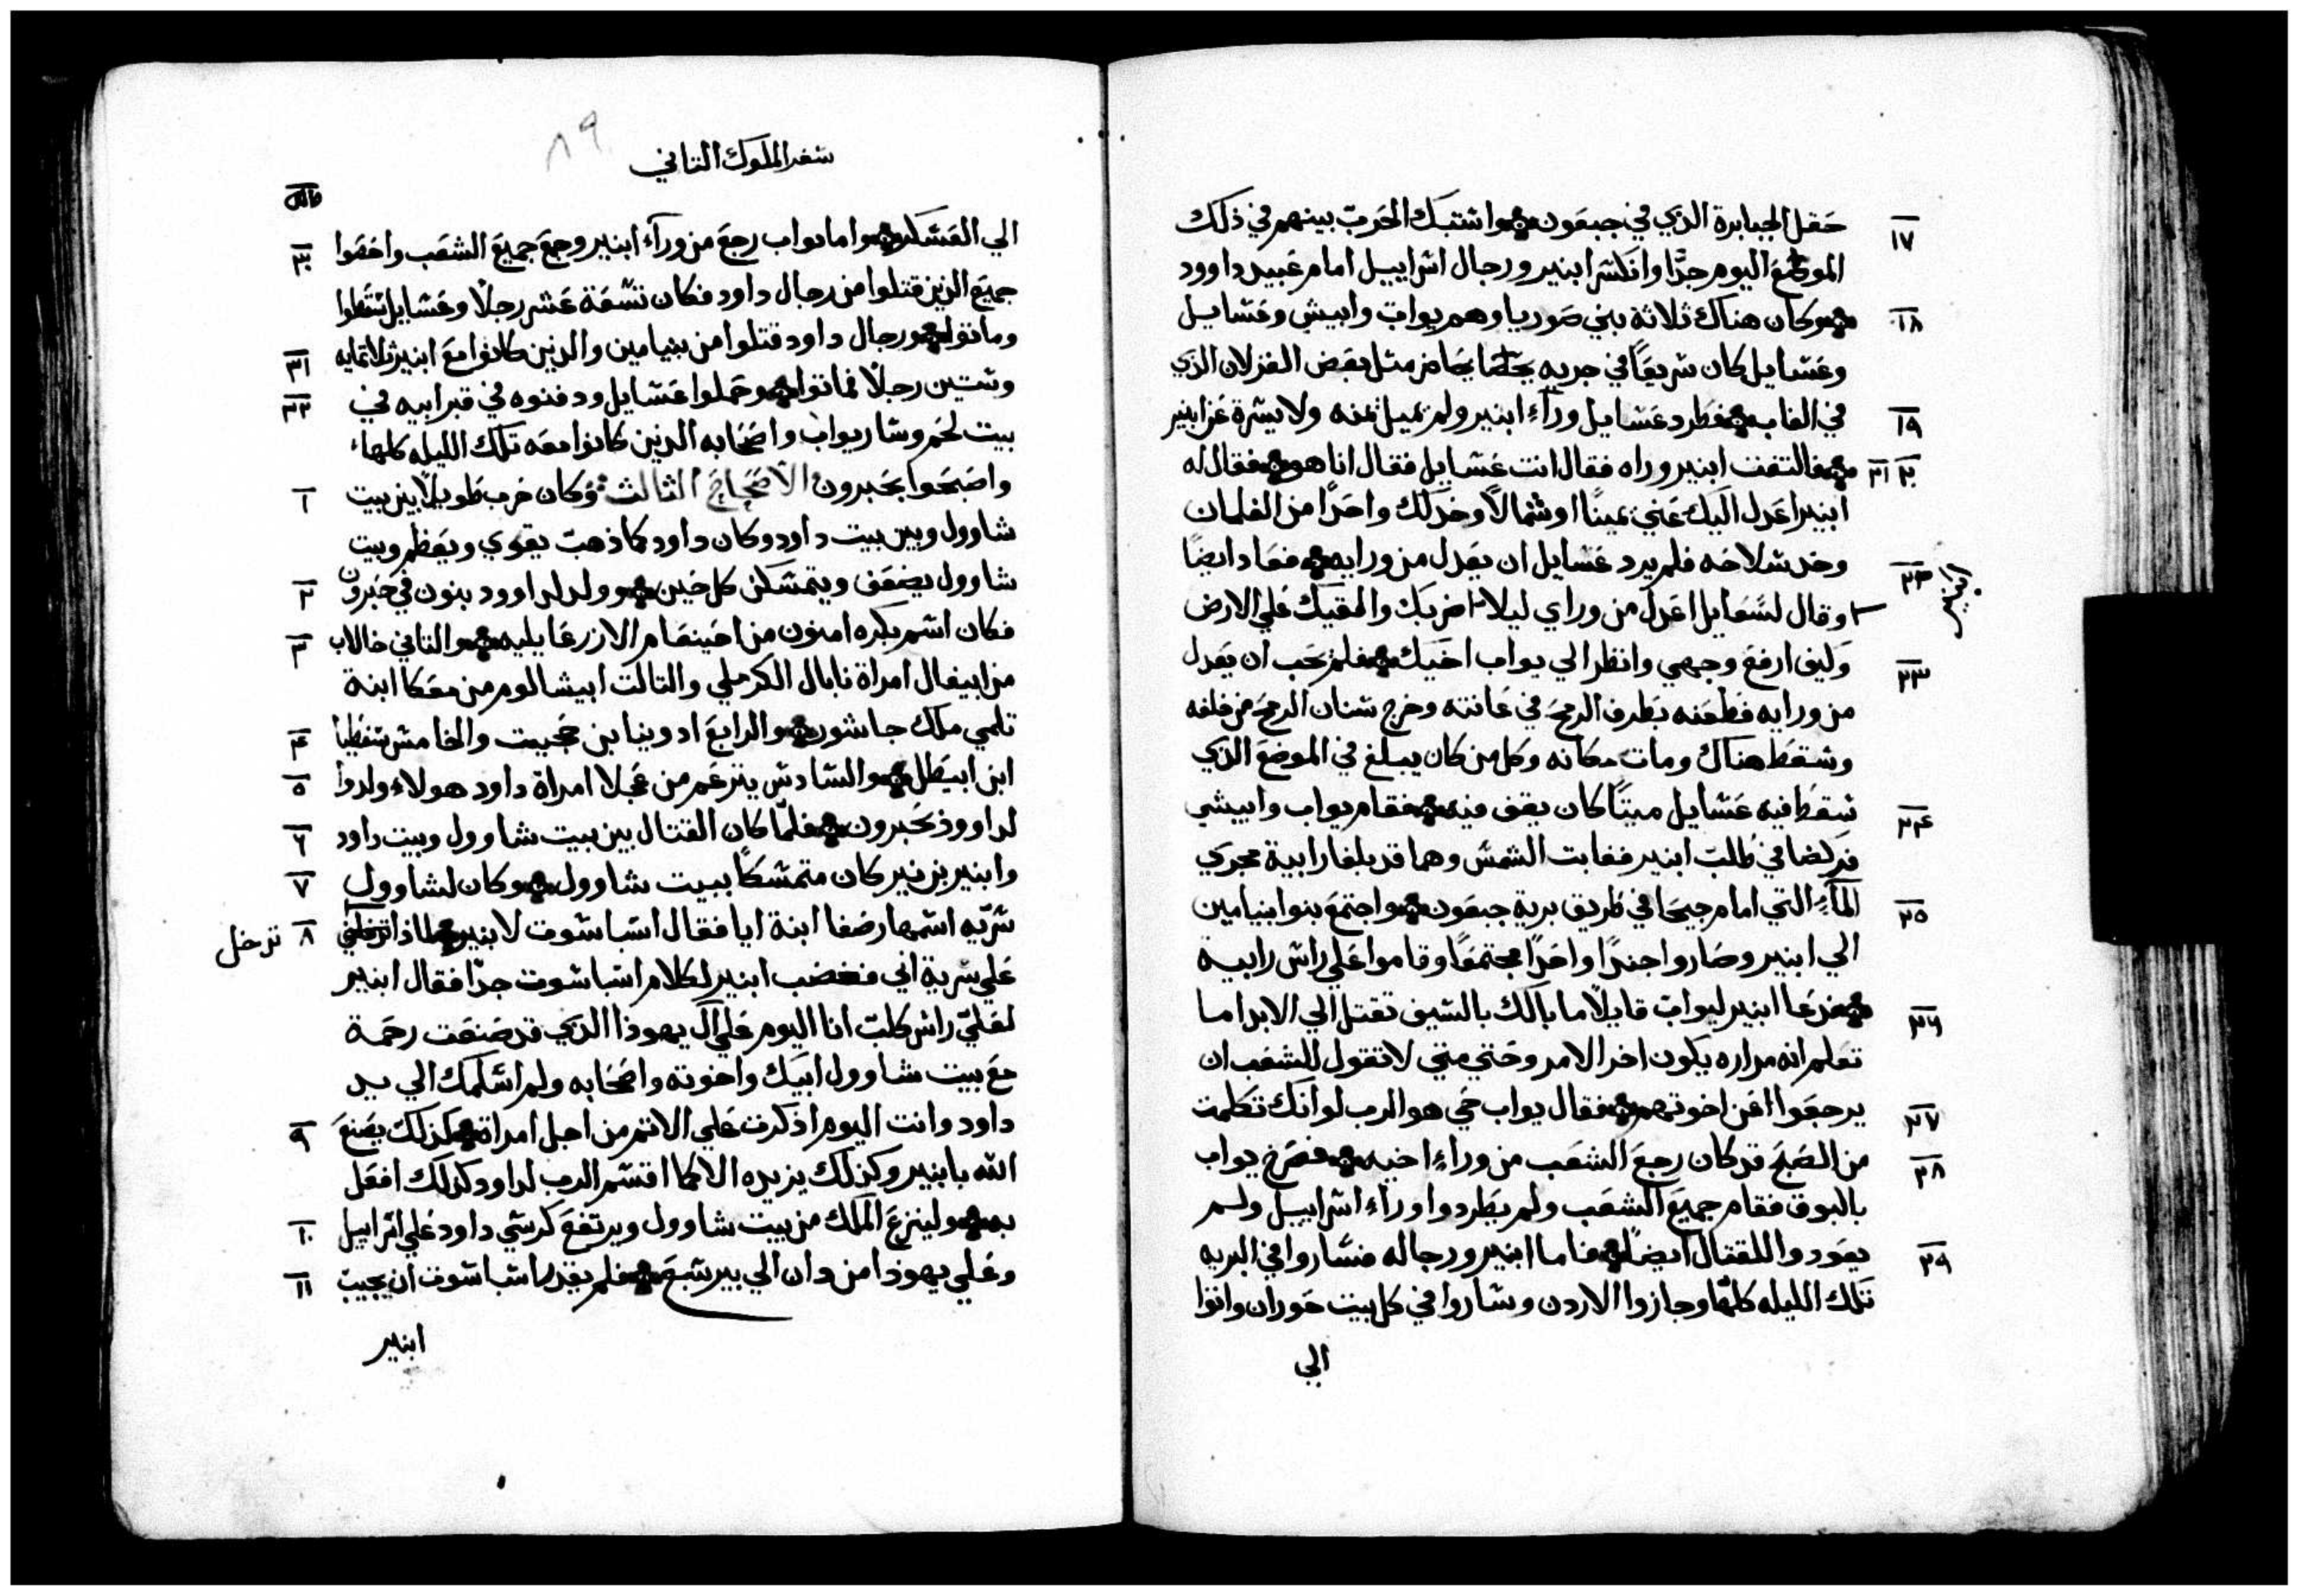 حقل الجبابرة الذي في جبعون واشتبك الحرب بينهم في ذلك
١٧
الموضع اليوم جدًا وانكسر ابنير ورجال اسراييل امام عبيد داوود
وكان هناك ثلاثة بني صوريا وهم يواب وابيشي وعشايل
١٨
وعشايل كان سريعًا في جريه مثل بعض الغزلان الذي
في الغاب فطرد عشايل ورآء ابنير ولم يميل يمنه ولا يسرة عن ابنير
١٩
فالتفت ابنير وراه فقال انت عشايل فقال انا هو فقال له
٢٠ ٢١
ابنير اعدل اليك عني يمينًا او شمالًا وخد لك واحدًا من الغلمان
وخد سلاحه فلم يرد عسايل ان يعدل من ورايه فعاد ايضًا
٢٢
ابنير
وقال لسعايل اعدل من وراي ليلا اضربك والقيك علي الارض
وليف ارفع وجهي وانظر الي يواب اخيك فلم يحب ان يعدل
٢٣
من ورايه فطعنه بطرف الرمح في عانته وخرج سنان الرمح من خلفه
وسقط هناك ومات مكانه وكل من كان يبلغ في الموضع الذي
سقط فيه عشايل ميتًا كان يقف فيه فقام يواب وابيشي
٢٤
فركضا في طلب ابنير فغابت الشمس وهما قد بلغا رابية مجري
المآء التي امام جيحا في طريق برية جبعون واجتمع بنوا بنيامين
٢٥
الي ابنير وصاروا جندًا واحدًا مجتمعًا وقاموا علي راس رابية
فدعا ابنير ليواب قايلًا ما بالك بالسيف تقتل الي الابد اما
٢٦
تعلم انه مراره يكون اخر الامر وحتي متي لا تقول للشعب ان
يرجعوا عن اخوتهم فقال يواب حي هو الرب لو انك تكلمت
٢٧
من الصبح قد كان رجع الشعب من ورآء اخيه فصرخ يواب
٢٨
بالبوق فقام جميع الشعب ولم يطردوا ورآء اسراييل ولم
يعودوا للقتال ايضًا فاما ابنير ورجاله فساروا في البريه
٢٩
تلك الليله كلها وجازوا الاردن وساروا في كل بيت حوران واتوا
الي
٨٩
سفر الملوك الثاني
الي العسكر واما يواب رجع من ورآء ابنير وجمع جميع الشعب واحصوا
٣٠
جميع الذين قتلوا من رجال داود فكان تسعة عشر رجلًا وعشايل سقطوا
وماتوا ورجال داود قتلوا من بنيامين والذين كانوا مع ابنير ثلاثمايه
٣١
وستين رجلًا فماتوا وحملوا عشايل ودفنوه في قبر ابيه في
٣٢
بيت لحم وسار يواب واصحابه الذين كانوا معه تلك الليله كلها
واصبحوا بحبرون الاصحاح الثالث وكان حرب طويلًا بين بيت
١
شاوول وبين بيت داود وكان داود كما ذهب يقوي ويعظم وبيت
شاوول يضعف ويتمسكن كل حين وولد لداوود بنون في حبرون
٢
فكان اسم بكره امنون من احينعام الازرعايليه والثاني خالاب
٣
من ابيغال امراة نابال الكرملي والثالث ابيشالوم من معكا ابنة
تلمي ملك جاشور والرابع ادوينا بن حجيت والخامس سفطيا
٤
ابن ابيطل والسادس يترعم من عجلا امراة داود هولاء ولدوا
٥
لداوود بحبرون فلمّا كان القتال بين بيت شاوول وبيت داود
٦
وابنير بن نير كان متمسكًا ببيت شاوول وكان لشاوول
٧
سريه اسمها رصفا ابنة ايا فقال اشباشوت لابنير لماذا
٨ تدخل
علي سرية ابي فغضب ابنير لكلام اشباشوت جدًا فقال ابنير
لعلي راس كلب انا اليوم علي آل يهوذا الذي قد صنعت رحمة
مع بيت شاوول ابيك واخوته واصحابه ولم اسلمك الي يد
داود وانت اليوم اذكرت علي الاثم من اجل امراة كذلك يصنع
٩
الله بابنير وكذلك يزيده الا كما اقسم الرب لداود كذلك افعل
به ولينزع الملك من بيت شاوول ويرتفع كرسي داود علي اسراييل
١٠
وعلي يهوذا من دان الي بير شبع فلم يقدر اشباشوت ان يجيب
١١
ابنير